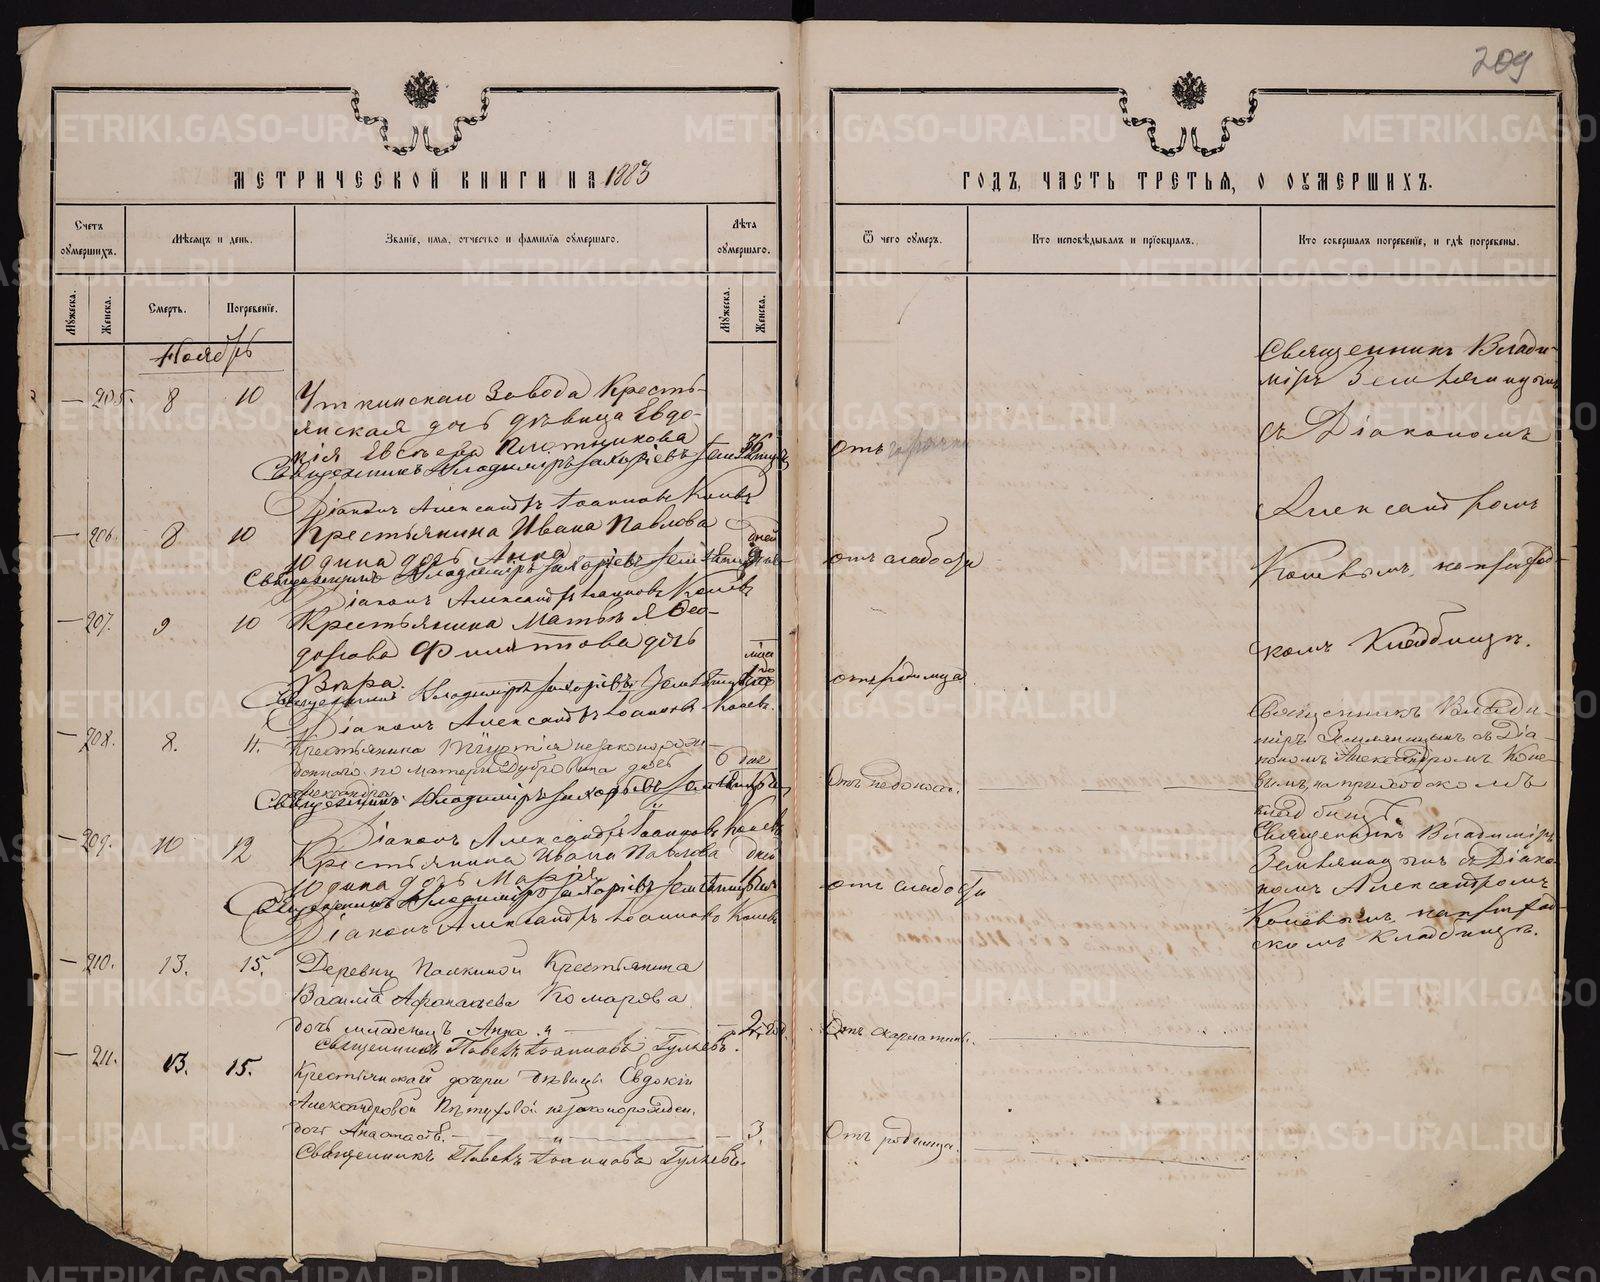 209
МЕТРИЧЕСКОЙ КНИГИ НА 1883
ГОДЪ, ЧАСТЬ ТРЕТЬЯ, О ОУМЕРШИХЪ.
Счетъ оумершихъ.
Мѣсяцъ и день.
Званіе, имя, отчество и фамилія оумершаго.
Лѣта оумершаго.
Ѿ чего оумеръ.
Кто исповѣдывалъ и пріобщалъ.
Кто совершалъ погребеніе, и гдѣ погребены.
Мужеска.
Женска.
Смерть.
Погребеніе.
Мужеска.
Женска.
Ноябрь
— 205. 8 10 Уткинскаго Завода Кресть-
янская дочь дѣвица Евдо-
кія Евсѣева Плотникова 36 отъ горячки
Священникъ Владиміръ Захаріевъ Земляницынъ
Діаконъ Александръ Іоанновъ Коневъ
Священникъ Влади-
міръ Земляницынъ
съ Діакономъ
Александромъ
Коневымъ, на приход-
скомъ Кладбищѣ.
— 206. 8 10 Крестьянина Ивана Павлова дней
Юдина дочь Анна отъ слабости
Священникъ Владиміръ Захаріевъ Земляницынъ
Діаконъ Александръ Іоанновъ Коневъ
— 207. 9 10 Крестьянина Матвѣя Ѳео-
дорова Филиппова дочь
Вѣра. отъ родимца
Священникъ Владиміръ Захаріевъ Земляницынъ
Діаконъ Александръ Іоанновъ Коневъ.
— 208. 8. 11. Крестьянина незаконорож-
деннаго по матери Дубровина дочь 6 дне
Александра Отъ недонос.
Священникъ Владиміръ Захаріевъ Земляницынъ
Діаконъ Александръ Іоанновъ Коневъ
Священникъ Влади-
міръ Земляницынъ съ Діа-
кономъ Александромъ Коне-
вымъ, на приходскомъ
кладбищѣ.
— 209. 10 12 Крестьянина Ивана Павлова дней
Юдина дочь Марія 16 отъ слабости
Священникъ Владиміръ Захаріевъ Земляницынъ
Діаконъ Александръ Іоанновъ Коневъ
Священникъ Владиміръ
Земляницынъ съ Діако-
номъ Александромъ
Коневымъ, на приход-
скомъ Кладбищѣ.
— 210. 13. 15. Деревни Палкиной Крестьянина
Василія Афанасьева Комарова
дочь младенецъ Анна 2, год. Отъ скарлатины.
Священникъ Павелъ Іоанновъ Гуляевъ.
— 211. 13. 15. Крестьянской дочери дѣвицы Евдокіи
Александровой Пѣтуховой незаконорожден.
дочь Анастасія. 3. Отъ родимца.
Священникъ Павелъ Іоанновъ Гуляевъ.
METRIKI.GASO-URAL.RU